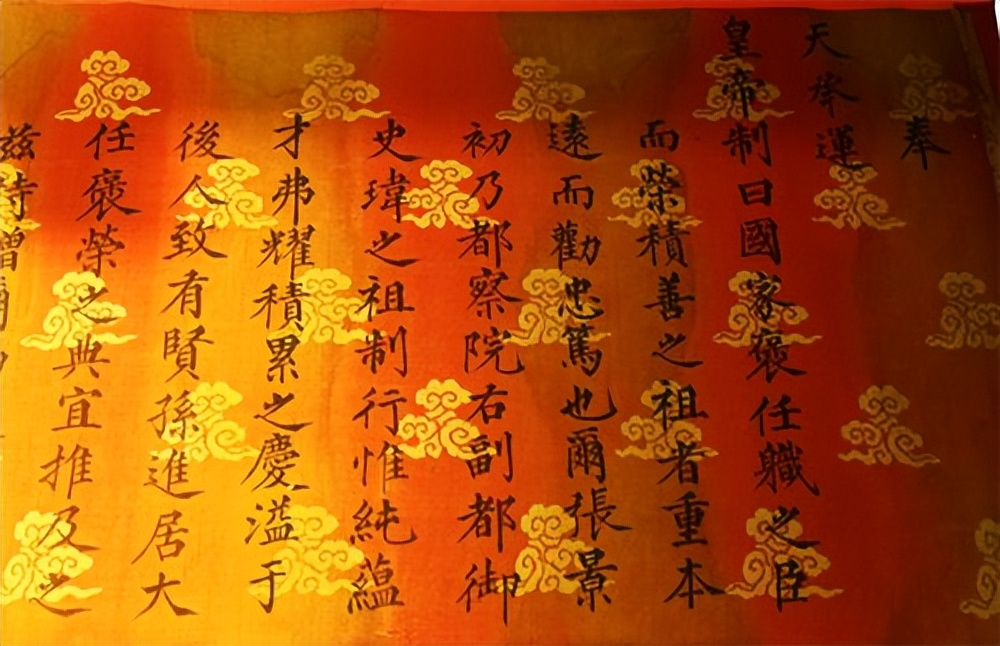 奉
天承運
皇帝制曰國家褒任職之臣
而榮積善之祖者重本
遠而勸忠篤也爾張景
初乃都察院右副都御
史瑋之祖制行惟純蘊
才弗耀積累之慶溢于
後人致有賢孫進居大
任褒榮之典宜推及之
茲特贈爾